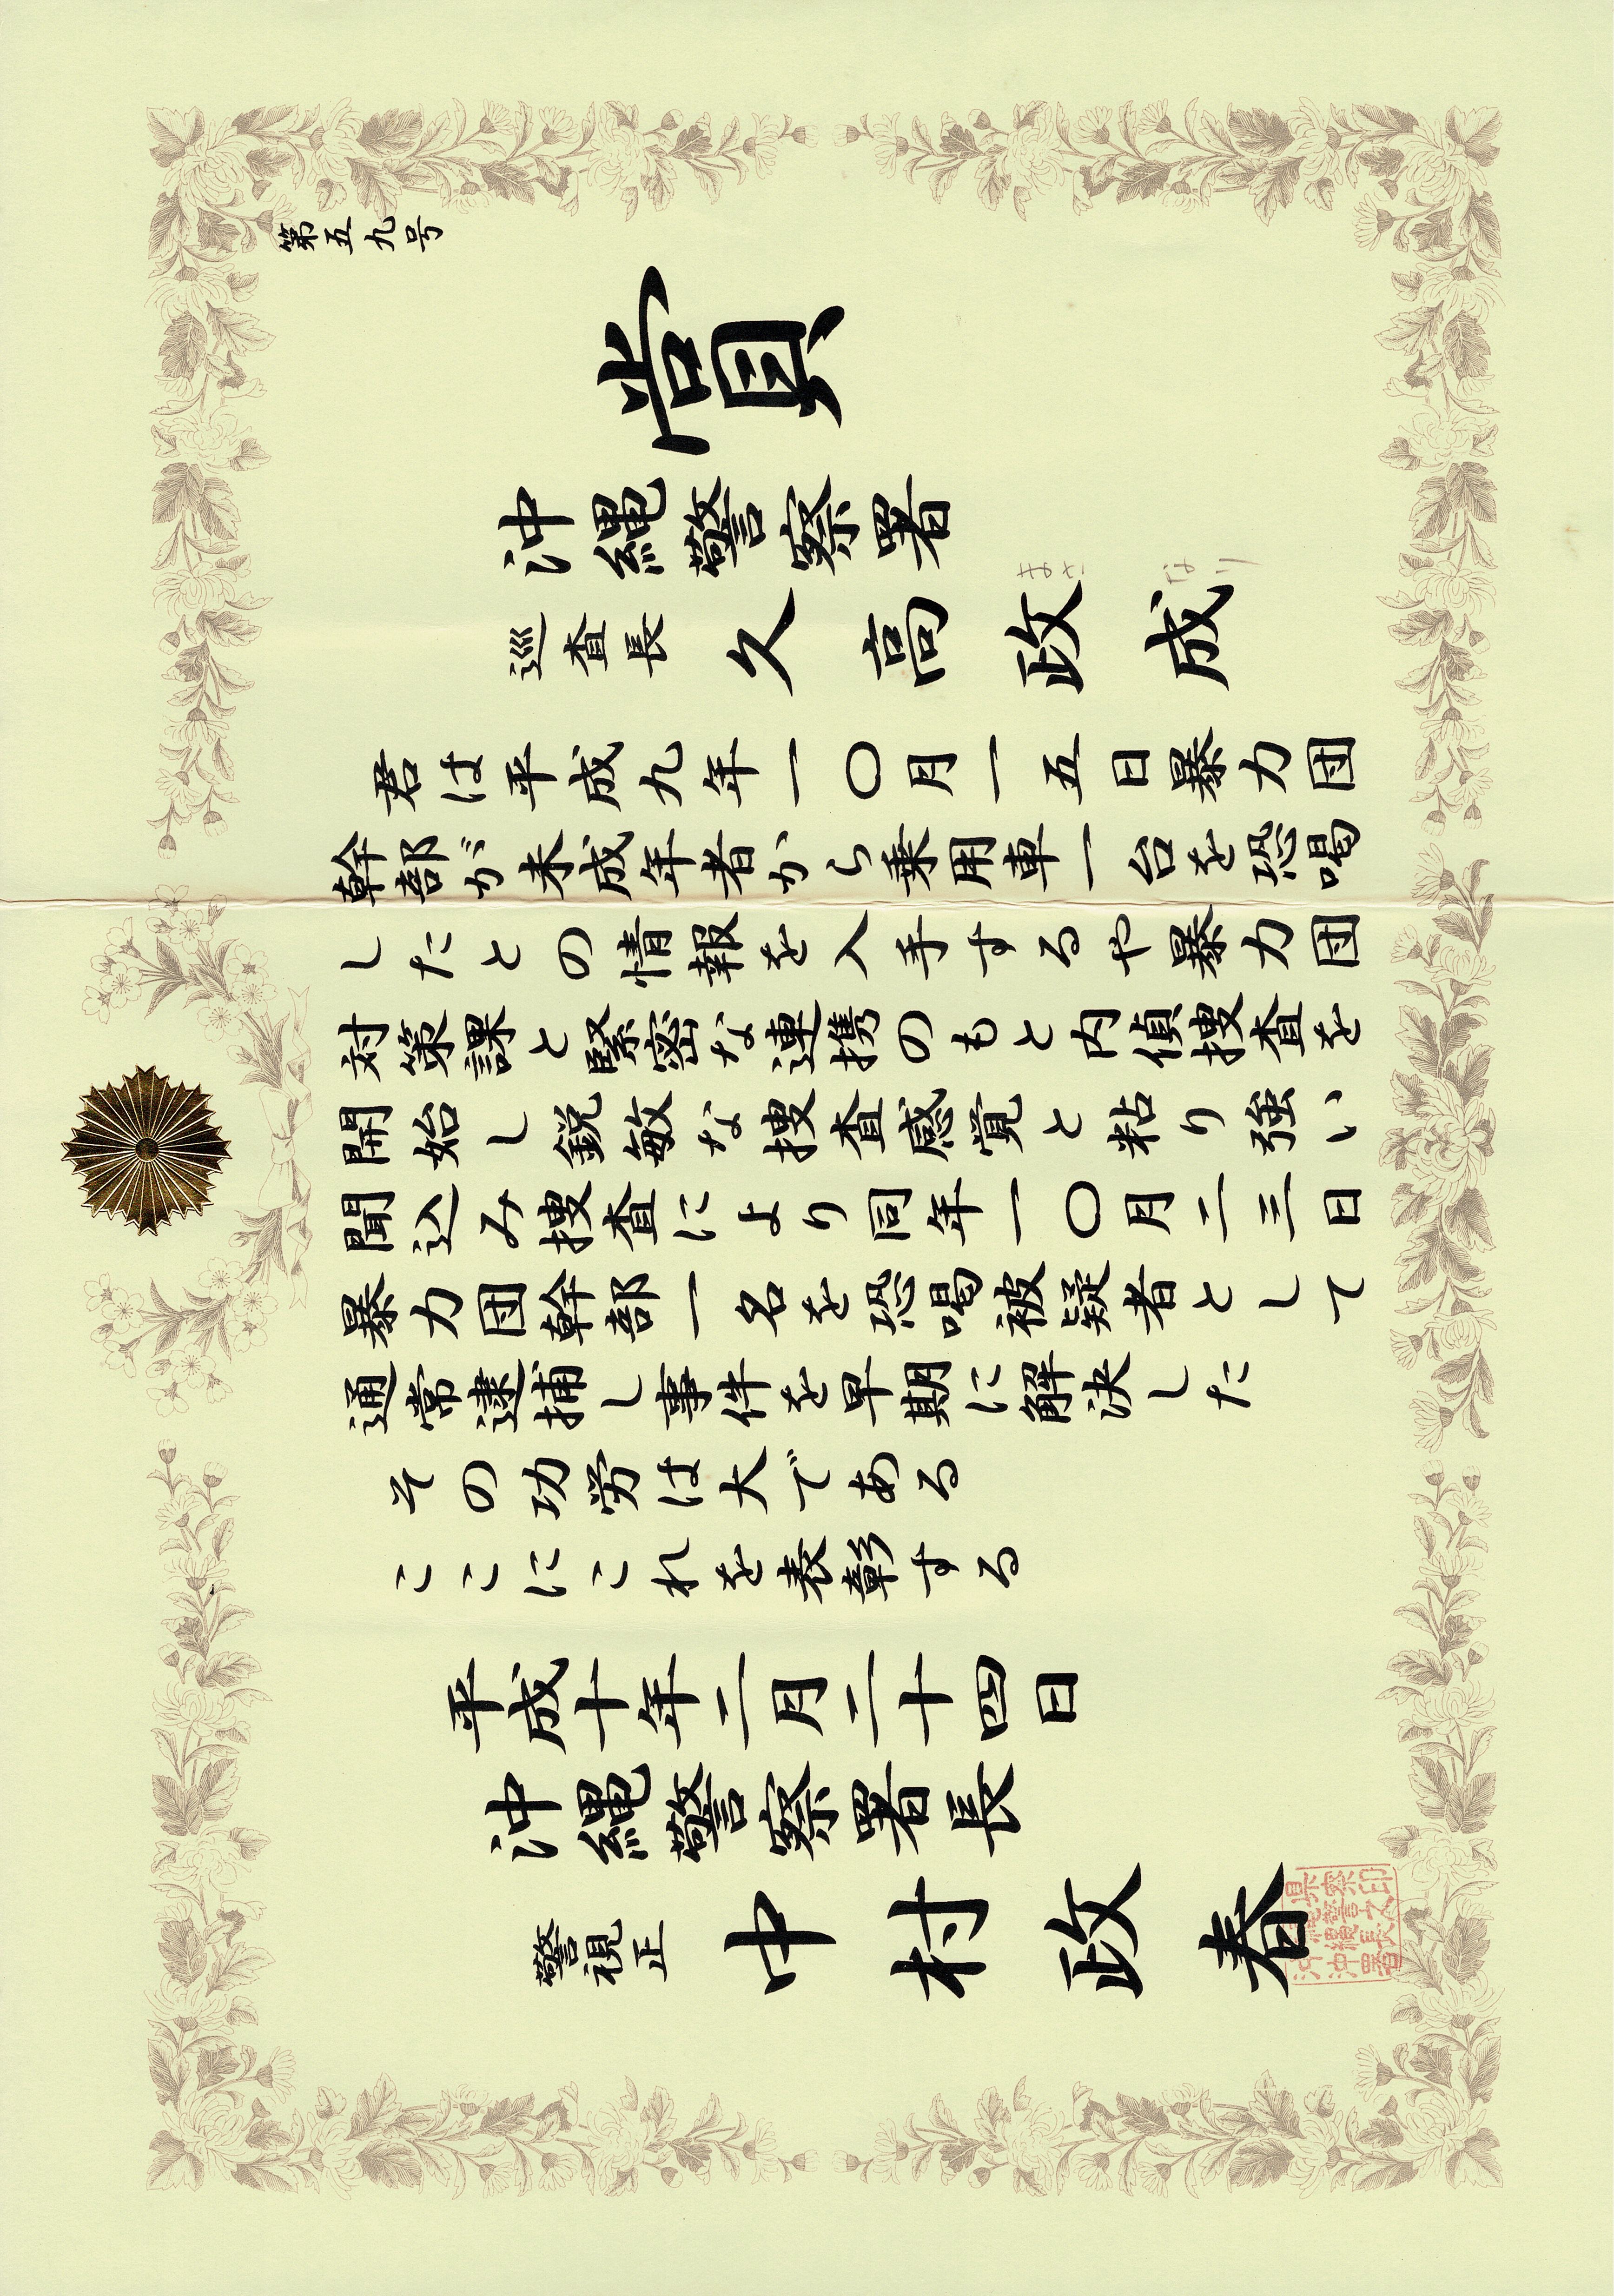 第五九号
賞
沖縄警察署
巡査長 久高政成
まさ なり
君は平成九年一〇月一五日暴力団
幹部が未成年者から乗用車一台を恐喝
したとの情報を入手するや暴力団
対策課と緊密な連携のもと内偵捜査を
開始し鋭敏な捜査感覚と粘り強い
聞込み捜査により同年一〇月二三日
暴力団幹部一名を恐喝被疑者として
通常逮捕し事件を早期に解決した
その功労は大である
ここにこれを表彰する
平成十年二月二十四日
沖縄警察署長
警視正 中村政春